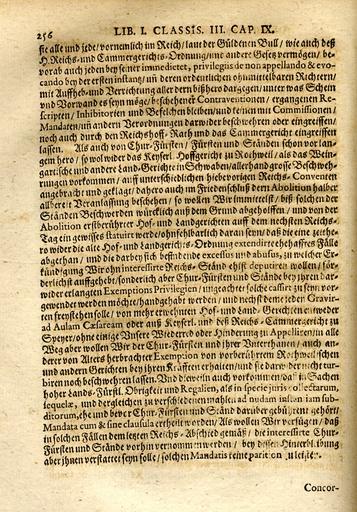 256 LIB. I. CLASSIS. III. CAP. IX.
sie alle und jede / vornemlich im Reich / laut der Güldenen Bull / wie auch deß
H. Reichs- und Cammergerichts-Ordnung / und andere Gesetz vermögen / be-
vorab auch jeden bey seiner immedietet, privilegiis de non appellando & evo-
cando bey der ersten instantz uñ deren ordentlichen ohnmittelbaren Richtern /
mit Auffheb- und Vernichtung aller dern bißhero dargegen / unter was Schein
und Vorwand es seyn möge / beschehener Contraventionen / ergangenen Re-
scripten / Inhibitorien und Befelchen bleiben / und keinen mit Commissionen /
Mandaten / uñ andern Verordnungen darwider beschwehren oder eingreiffen /
noch auch durch den Reichshoff-Rath und das Cammergericht eingreiffen
lassen. Als auch von Chur-Fürsten / Fürsten und Ständen schon vor lan-
gem hero / so wol wider das Keyserl. Hoffgericht zu Rochweil / als das Wein-
gartische und andere Land-Gerichte in Schwaben / allerhand grosse Beschweh-
rungen vorkommen / auff unterschiedlichen hiebevorigen Reichs-Conventen
angebracht und geklagt / dahero auch im Friedenschluß dern Abolition halber
allbereit Veranlassung beschehen / so wollen Wir immittelst / biß solchen der
Ständen Beschwerden würcklich auß dem Grund abgeholffen / und von der
Abolition erstberührter Hof- und Landgerichten auff dem nechsten Reichs-
Tag ein gewisses statuirt werde / ohnfehlbarlich daran seyn / daß die eine zeithe-
ro wider die alte Hof- und Landgerichts-Ordnung extendirte ehehaffte Fälle
abgethan / und die darbey sich befindende excessus und abusus, zu welcher Er-
kündigung Wir ohninteressirte Reichs-Ständ ehist deputiren wollen / för-
derlichst auffgehebt / sonderlich aber Chur-Fürsten und Stände bey ihren dar-
wider erlangten Exemptions Privilegien / ungeachtet solche cassirt zu seyn / vor-
gewendet werden möchte / handgehabt werden / und nechst deme jeden Gravir-
ten freystehen solle / von mehr erwehnten Hof- und Land-Gerichten entweder
ad Aulam Cæsaream oder auß Keyserl. und deß Reichs Cammergericht zu
Speyer / ohne einige Unsere Widerred oder Hinderung zu Appelliren / in alle
Weg aber wollen Wir der Chur-Fürsten und ihrer Unterthanen / auch an-
derer von Alters herbrachter Exemption von vorberührtem Rothweilischen
und andern Gerichten bey ihren Kräfften erhalten / und sie darwider nicht tur-
biren noch beschwehren lassen. Und dieweil auch vorkommen / daß in Sachen
hoher Lands-Fürstl. Obrigkeit und Regalien, als in specie juris collectarum,
sequelæ, und dergleichen zu verschiedenen mahlen ad nudam instantiam sub-
ditorum, ehe und bevor Chur-Fürsten und Ständ darüber gebührent gehört /
Mandata cum & sine clausula ertheilt worden / Als wollen Wir verfügen / daß
in solchen Fällen dem letzten Reichs-Abschied gemäß / die interessirte Chur-
Fürsten und Stände vorhin vernommen werden / bey dessen Hinterbleibung
aber ihnen verstattet seyn solle / solchen Mandatis keine parition zu leisten.
Concor-